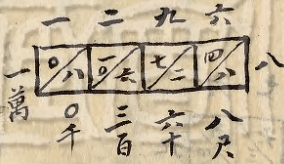 一 二 九 六
〇 八 一 六 七 二 四 八 八
一萬 〇千 三百 六十 八尺